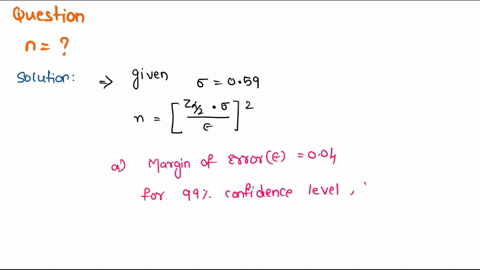 Question
n = ?
Solution: => given σ = 0.59
n = [Zα/2 · σ / E]²
a) Margin of Error(E) = 0.04
for 99% confidence level,